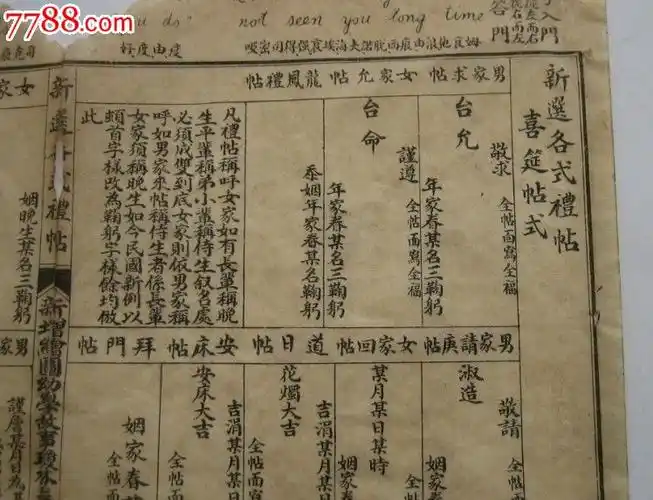 7788.com
you do"
not seen you long time
入門
答門
新選各式禮帖
喜筵帖式
男家求帖
女家允帖
龍鳳禮帖
敬求
全帖面寫全福
台允
年家眷某名三鞠躬
謹遵
全帖面寫全福
台命
年家眷某名三鞠躬
忝姻年家眷某名鞠躬
凡禮帖稱呼女家如有長輩稱晚
生平輩稱弟小輩稱侍生叙名處
必須成雙到底女家則依男家稱
呼如男家來帖稱侍生者係長輩
女家須稱晚生如今民國新例以
頓首字樣改為鞠躬字樣餘均倣
此
男家請庚帖
女家回帖
道日帖
安床帖
拜門帖
敬請
全帖面寫
淑造
姻家眷
某月某日某時
姻家
吉涓某月某日
全帖面
花燭大吉
吉涓某月某日
全帖面寫
安床大吉
全帖面
姻家眷
女家
新選各式禮帖
新增繪圖幼學故事瓊林
姻晚生某名三鞠躬
男家
謹詹某月某日為
全帖面